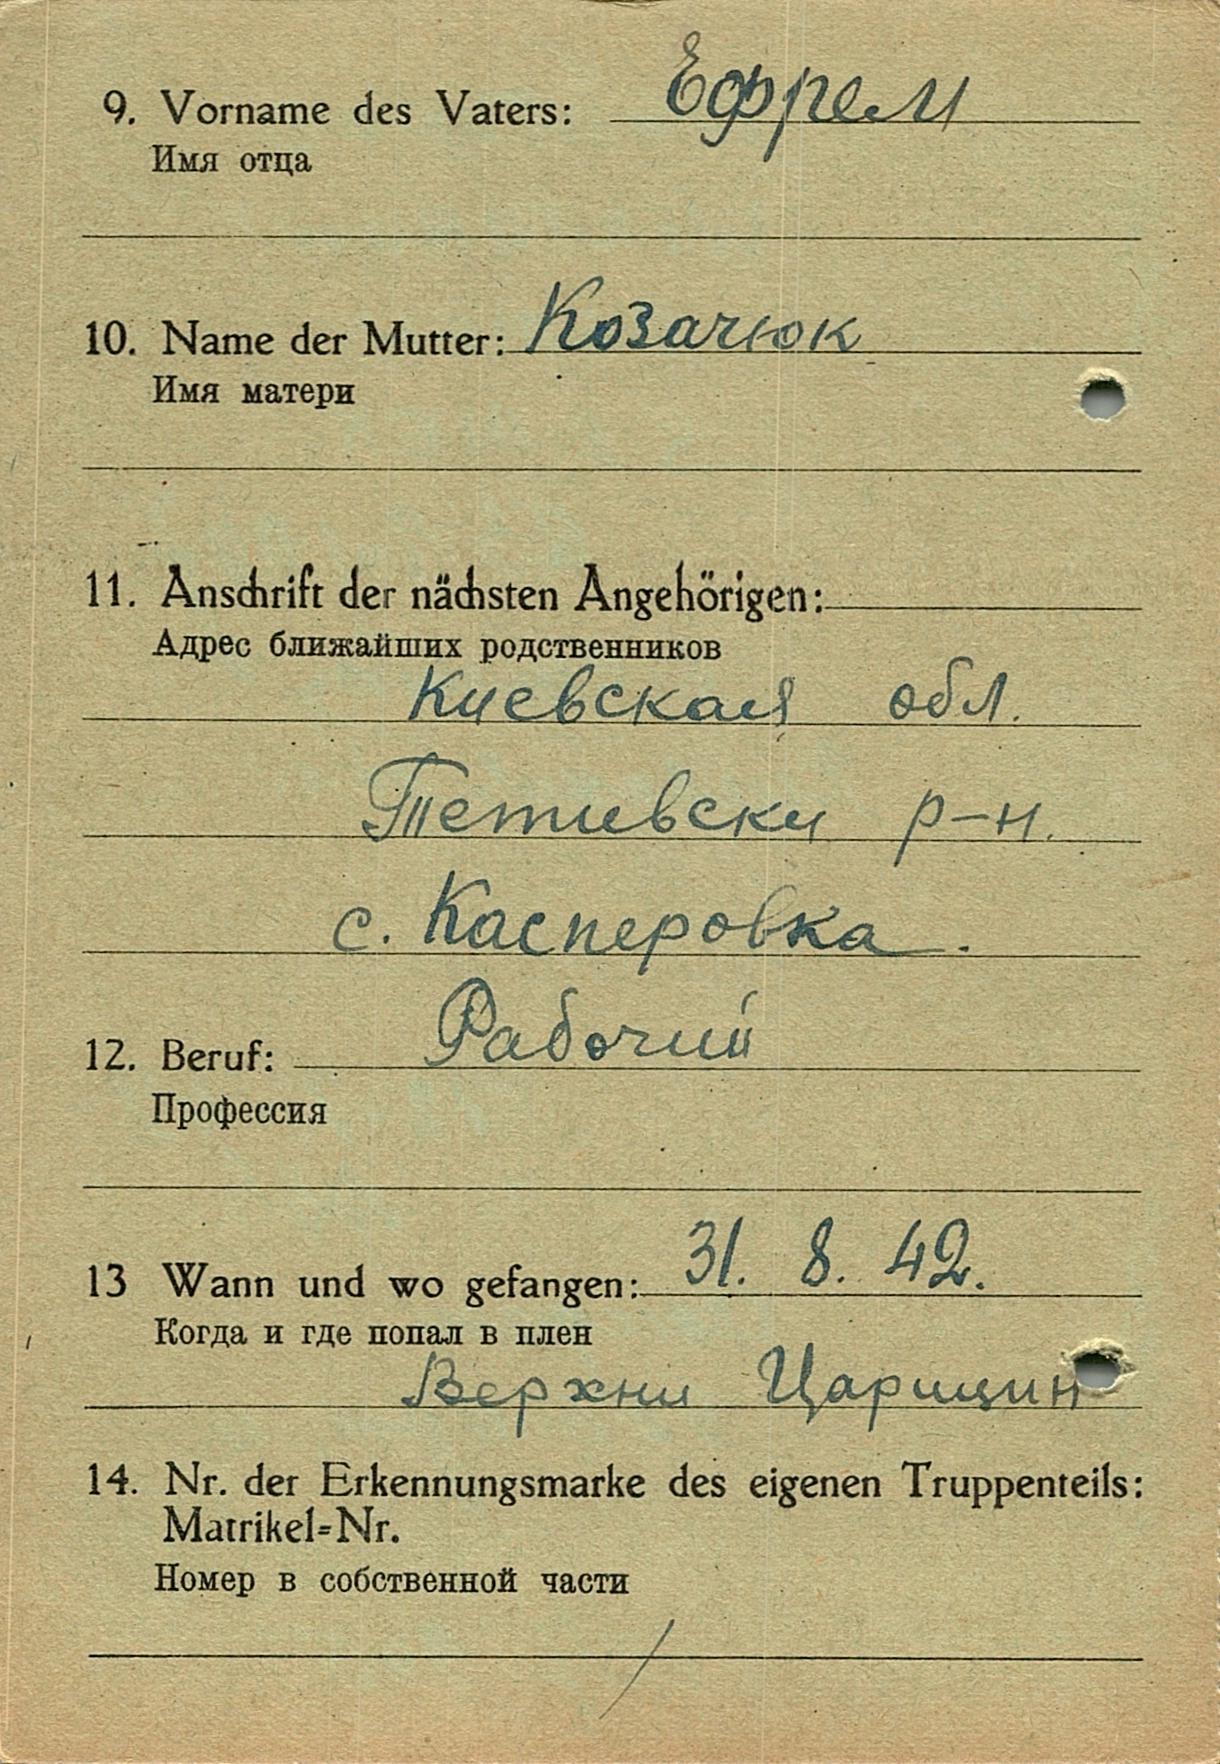 9. Vorname des Vaters: Ефрем
Имя отца
10. Name der Mutter: Козачюк
Имя матери
11. Anschrift der nächsten Angehörigen:
Адрес ближайших родственников
Киевская обл.
Тетиевски р-н.
с. Касперовка.
12. Beruf: Рабочий
Профессия
13 Wann und wo gefangen: 31. 8. 42.
Когда и где попал в плен
Верхни Царицин
14. Nr. der Erkennungsmarke des eigenen Truppenteils:
Matrikel=Nr.
Номер в собственной части
/